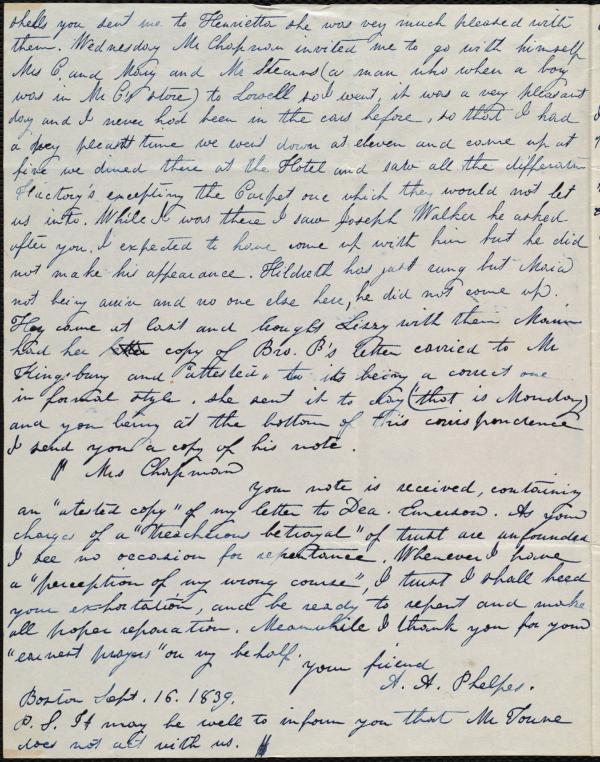 shells you sent me to Henrietta she was very much pleased with
them. Wednesday Mr Chapman invited me to go with himself
Mrs C. and Mary and Mr Stearns (a man who when a boy
was in Mr C's store) to Lowell so I went, it was a very pleasant
day and I never had been in the cars before, so that I had
a very pleasant time we went down at eleven and came up at
five we dined there at the Hotel and saw all the different
Factory's excepting the Carpet one which they would not let
us into. While I was there I saw Joseph Walker he asked
after you. I expected to have come up with him but he did
not make his appearance. Hildreth has just rung but Maria
not being and no one else here, he did not come up.
They came at last and bought Lizzy with them
had her copy of Bro. P's letter carried to Mr
Kingsbury and attested to its being a correct one
in formal style. she sent it to day (that is Monday)
and you being at the bottom of this corrispondence
I send you a copy of his note.
" Mrs Chapman
Your note is received, containing
an "atested copy" of my letter to Dea. Emerson. As your
charges of a "treacherous betrayal" of trust are unfounded
I see no occasion for repentance. Whenever I have
a "perception of my wrong course", I trust I shall heed
your exhortation, and be ready to repent and make
all proper reparation. Meanwhile I thank you for your
"earnest prayers" on my behalf.
your friend
A. A. Phelps.
Boston Sept. 16. 1839.
P. S. It may be well to inform you that Mr Towne
does not act with us. "